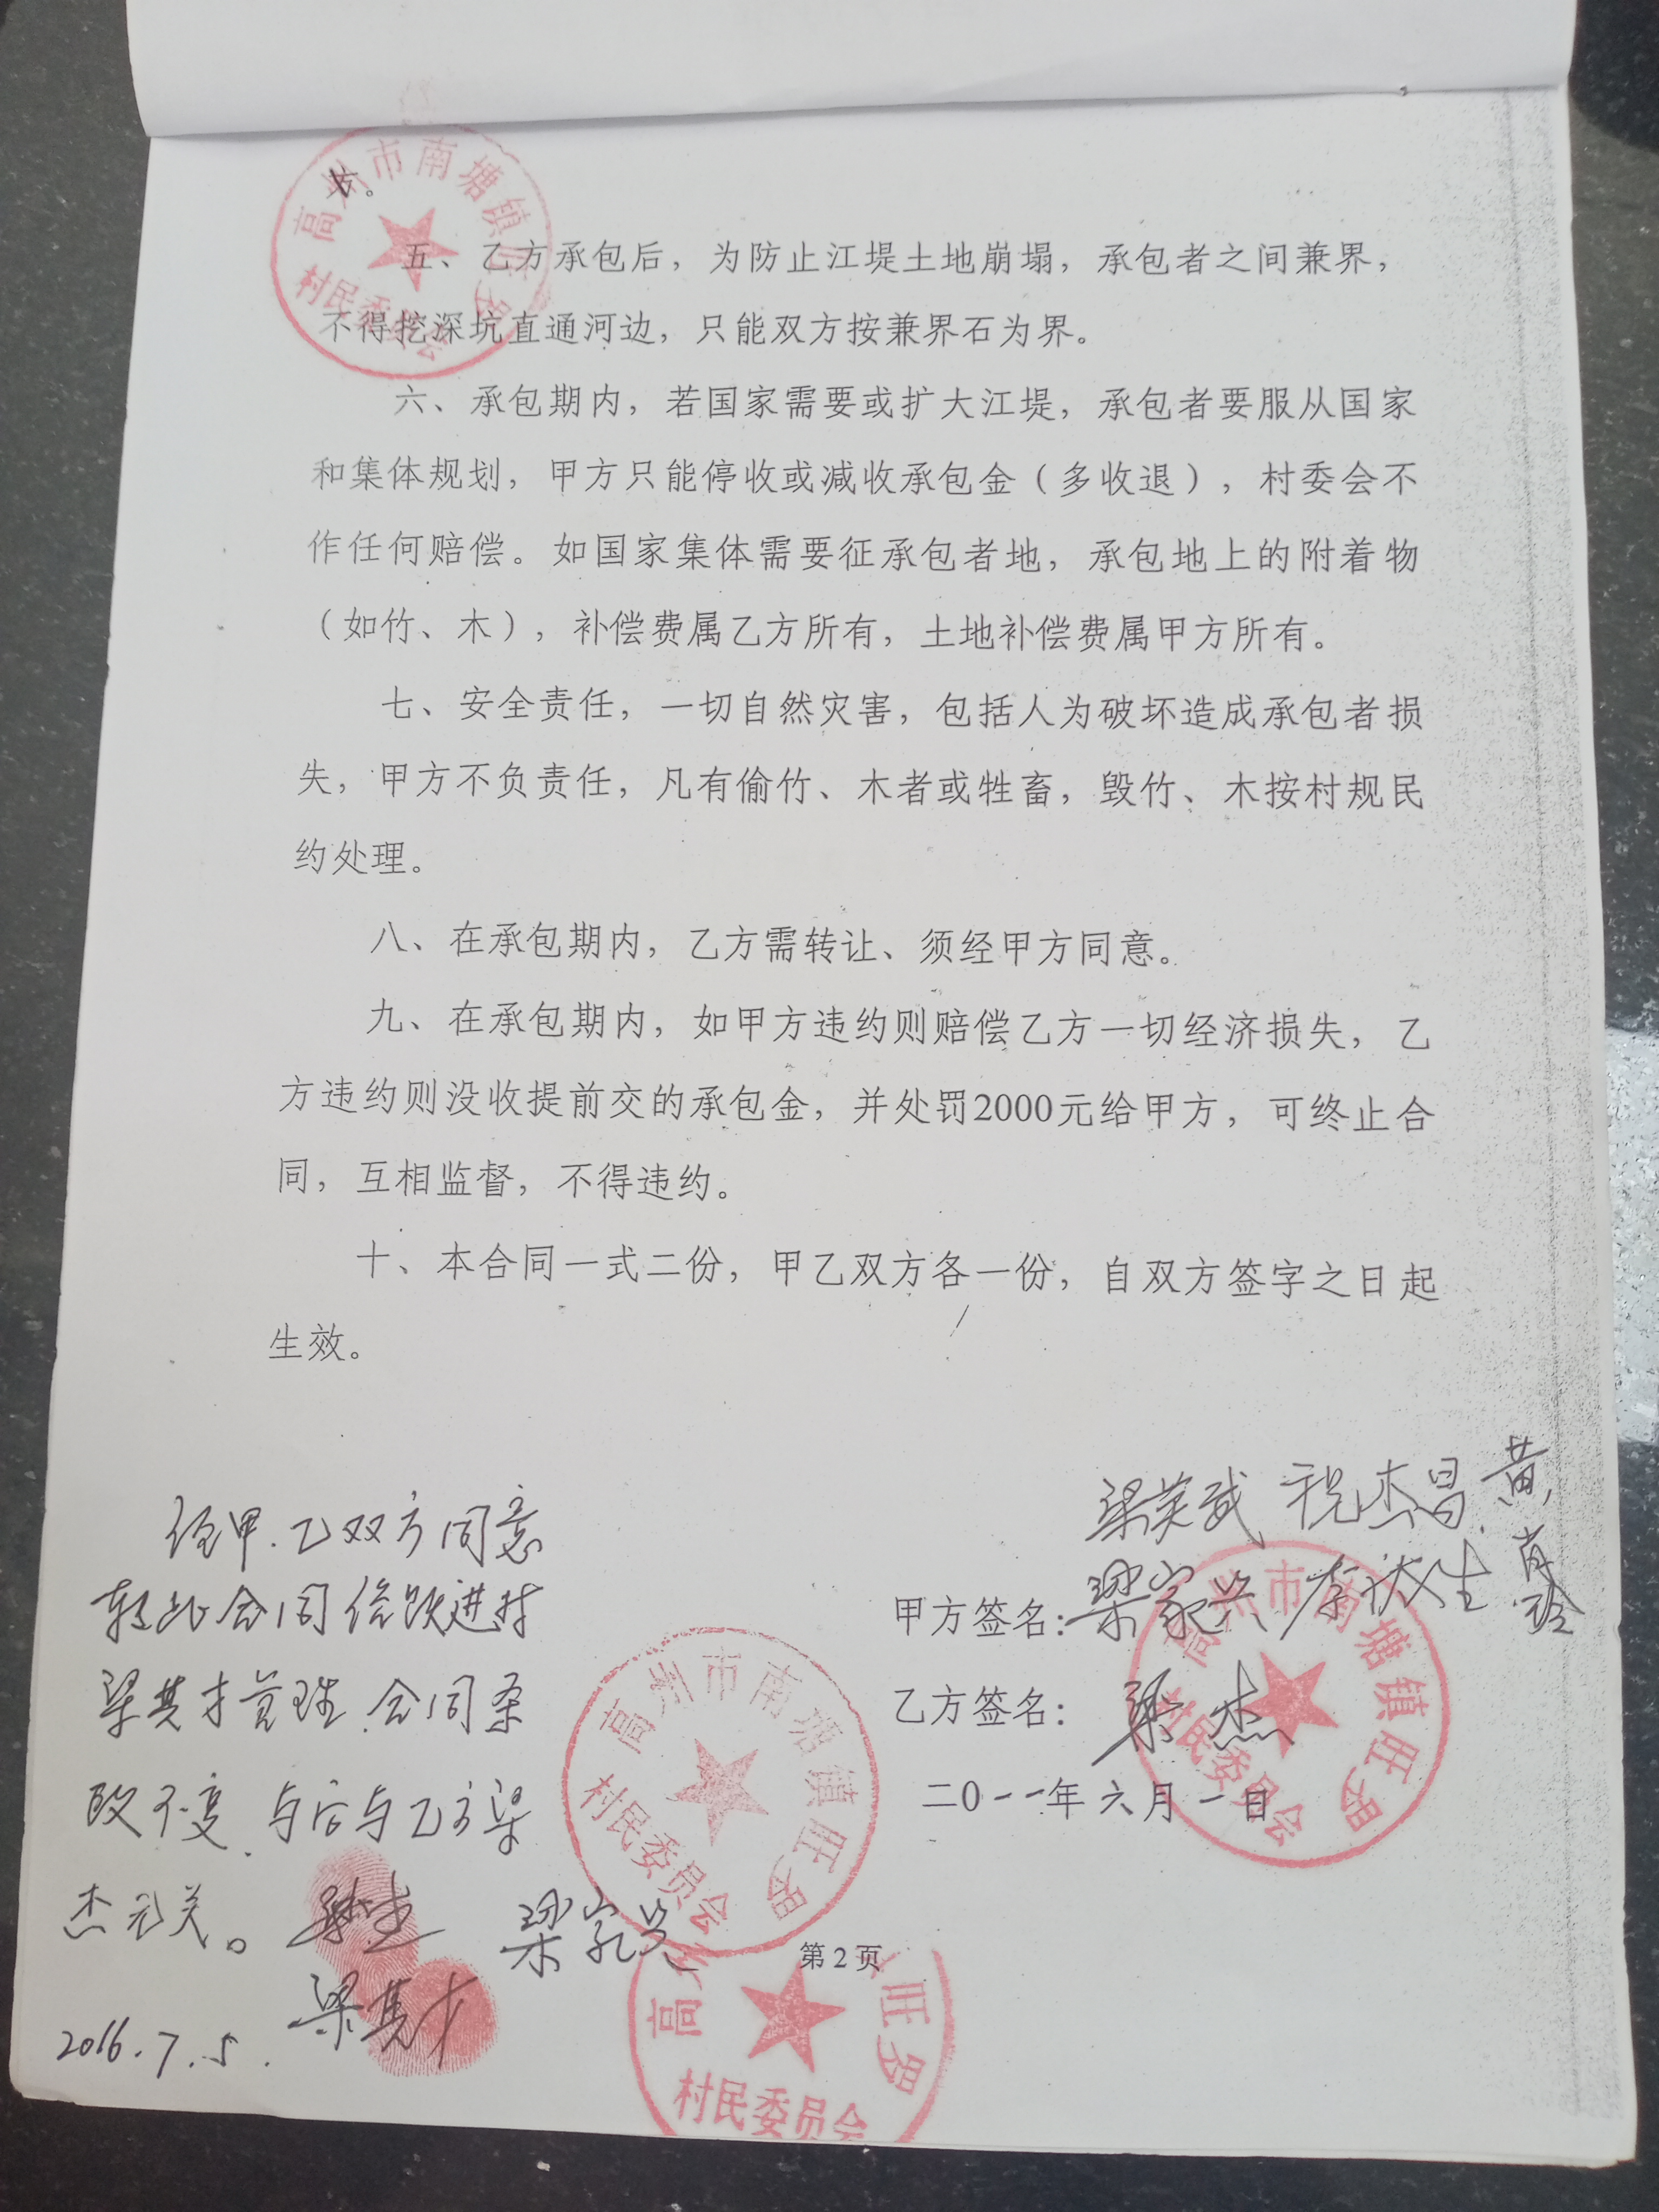 方。
五、乙方承包后，为防止江堤土地崩塌，承包者之间兼界，
不得挖深坑直通河边，只能双方按兼界石为界。
六、承包期内，若国家需要或扩大江堤，承包者要服从国家
和集体规划，甲方只能停收或减收承包金（多收退），村委会不
作任何赔偿。如国家集体需要征承包者地，承包地上的附着物
（如竹、木），补偿费属乙方所有，土地补偿费属甲方所有。
七、安全责任，一切自然灾害，包括人为破坏造成承包者损
失，甲方不负责任，凡有偷竹、木者或牲畜，毁竹、木按村规民
约处理。
八、在承包期内，乙方需转让、须经甲方同意。
九、在承包期内，如甲方违约则赔偿乙方一切经济损失，乙
方违约则没收提前交的承包金，并处罚2000元给甲方，可终止合
同，互相监督，不得违约。
十、本合同一式二份，甲乙双方各一份，自双方签字之日起
生效。
梁英武 程杰昌 黄
甲方签名：梁家兴
乙方签名：梁杰
二0一一年六月一日
经甲.乙双方同意
转此合同给跃进村
梁其才管理.合同条
改不变.与后与乙方梁
杰无关。 梁杰 梁家兴
梁其才
2016.7.5.
第2页
高州市南塘镇旺罗
村民委员会
高州市南塘镇旺罗
村民委员会
高州市南塘镇旺罗
村民委员会
高州 旺罗
村民委员会